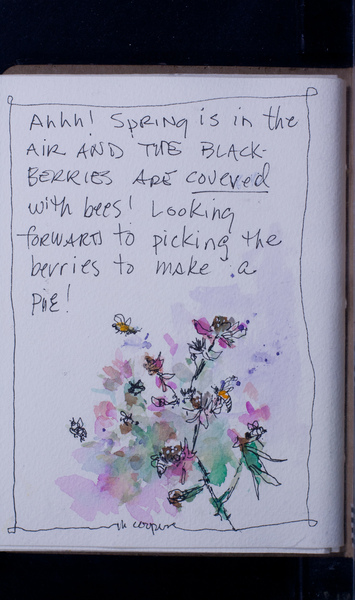 Ahhh! SPRING is in the
AIR AND THE BLACK-
BERRIES ARE covered
with bees! Looking
FORWARD to picking the
berries to make a
PIE!